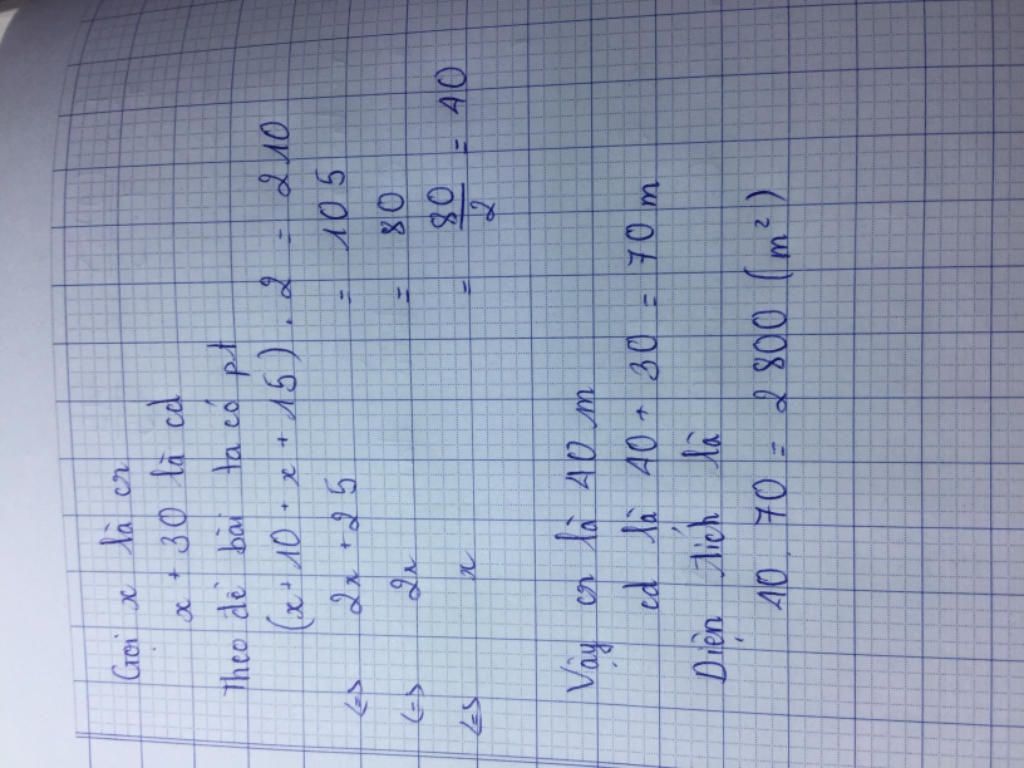 Gọi x là cr
x + 30 là cd
Theo đề bài ta có pt
(x + 10 + x + 15) . 2 = 210
<=> 2x + 25 = 105
<=> 2x = 80
<=> x = 80/2 = 40
Vậy cr là 40 m
cd là 40 + 30 = 70 m
Diện tích là
40 . 70 = 2 800 (m²)